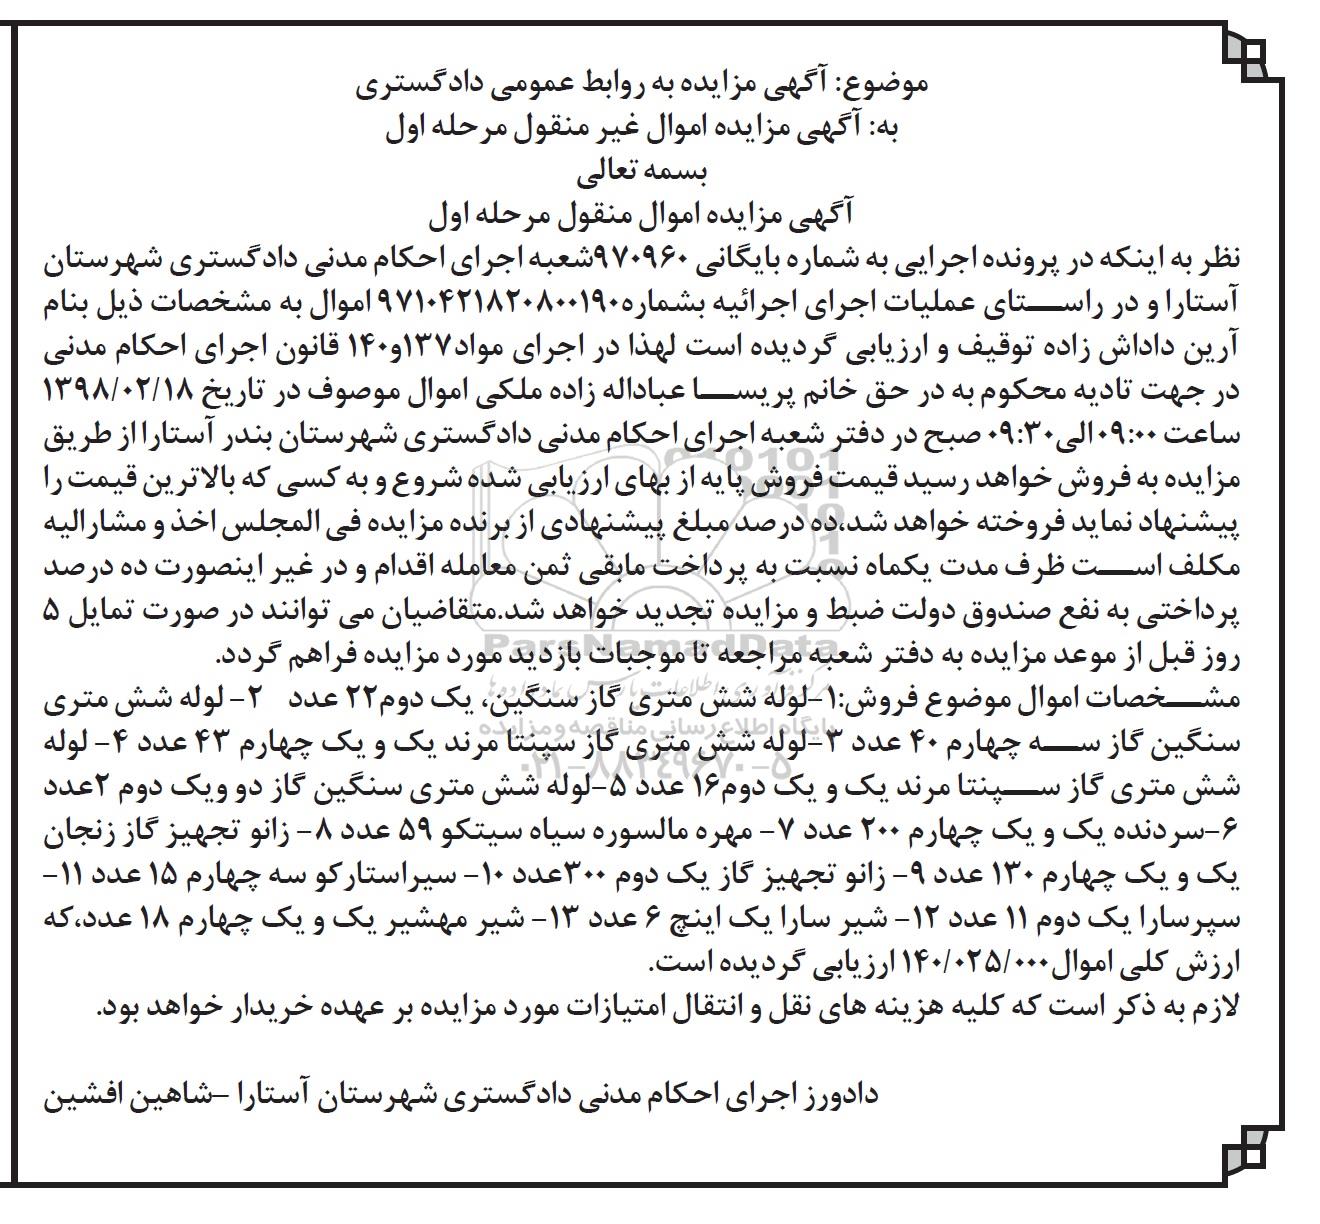 موضوع: آگهی مزایده به روابط عمومی دادگستری
به: آگهی مزایده اموال غیر منقول مرحله اول
بسمه تعالی
آگهی مزایده اموال منقول مرحله اول
نظر به اینکه در پرونده اجرایی به شماره بایگانی ۹۷۰۹۶۰شعبه اجرای احکام مدنی دادگستری شهرستان
آستارا و در راستای عملیات اجرای اجرائیه بشماره۹۷۱۰۴۲۱۸۲۰۸۰۰۱۹۰ اموال به مشخصات ذیل بنام
آرین داداش زاده توقیف و ارزیابی گردیده است لهذا در اجرای مواد۱۳۷و۱۴۰ قانون اجرای احکام مدنی
در جهت تادیه محکوم به در حق خانم پریسا عباداله زاده ملکی اموال موصوف در تاریخ ۱۳۹۸/۰۲/۱۸
ساعت ۰۹:۰۰الی۰۹:۳۰ صبح در دفتر شعبه اجرای احکام مدنی دادگستری شهرستان بندر آستارا از طریق
مزایده به فروش خواهد رسید قیمت فروش پایه از بهای ارزیابی شده شروع و به کسی که بالاترین قیمت را
پیشنهاد نماید فروخته خواهد شد،ده درصد مبلغ پیشنهادی از برنده مزایده فی المجلس اخذ و مشارالیه
مکلف است ظرف مدت یکماه نسبت به پرداخت مابقی ثمن معامله اقدام و در غیر اینصورت ده درصد
پرداختی به نفع صندوق دولت ضبط و مزایده تجدید خواهد شد.متقاضیان می توانند در صورت تمایل ۵
روز قبل از موعد مزایده به دفتر شعبه مراجعه تا موجبات بازدید مورد مزایده فراهم گردد.
مشخصات اموال موضوع فروش:۱-لوله شش متری گاز سنگین، یک دوم۲۲ عدد ۲- لوله شش متری
سنگین گاز سه چهارم ۴۰ عدد ۳-لوله شش متری گاز سپنتا مرند یک و یک چهارم ۴۳ عدد ۴- لوله
شش متری گاز سپنتا مرند یک و یک دوم۱۶ عدد ۵-لوله شش متری سنگین گاز دو ویک دوم ۲عدد
۶-سردنده یک و یک چهارم ۲۰۰ عدد ۷- مهره مالسوره سیاه سیتکو ۵۹ عدد ۸- زانو تجهیز گاز زنجان
یک و یک چهارم ۱۳۰ عدد ۹- زانو تجهیز گاز یک دوم ۳۰۰عدد ۱۰- سیراستارکو سه چهارم ۱۵ عدد ۱۱-
سپرسارا یک دوم ۱۱ عدد ۱۲- شیر سارا یک اینچ ۶ عدد ۱۳- شیر مهشیر یک و یک چهارم ۱۸ عدد،که
ارزش کلی اموال۱۴۰/۰۲۵/۰۰۰ ارزیابی گردیده است.
لازم به ذکر است که کلیه هزینه های نقل و انتقال امتیازات مورد مزایده بر عهده خریدار خواهد بود.
دادورز اجرای احکام مدنی دادگستری شهرستان آستارا -شاهین افشین
ParsNamadData
پایگاه اطلاع رسانی مناقصه و مزایده
۰۲۱-۸۸۳۴۹۶۷۰-۵